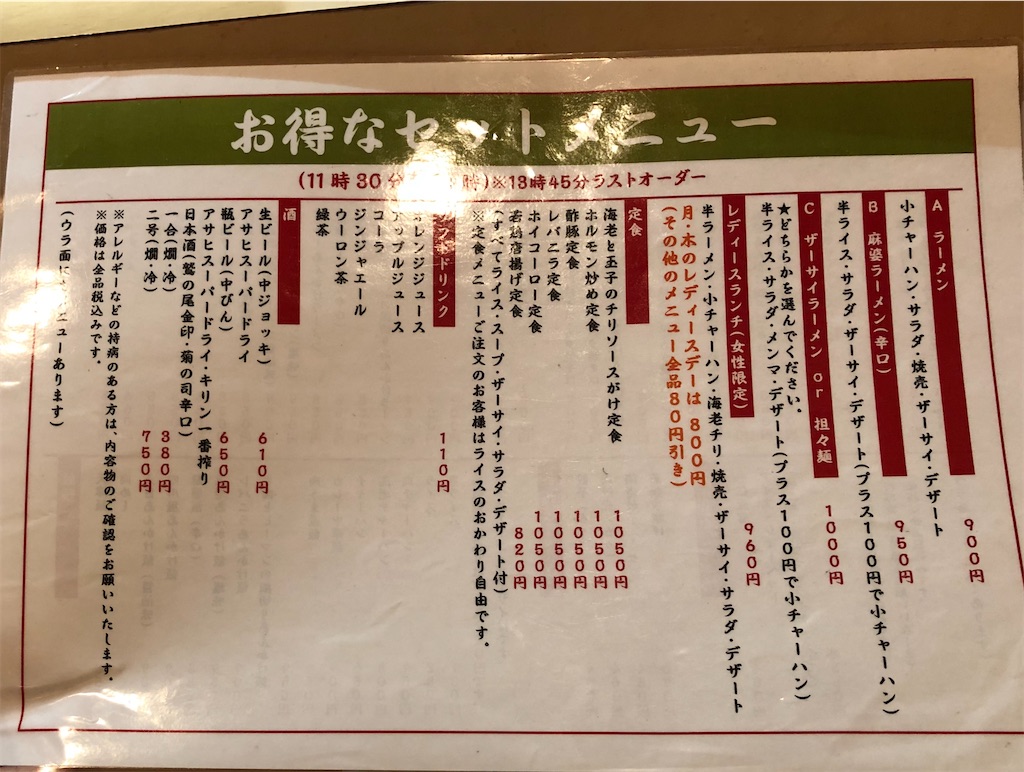 お得なセットメニュー
(11時30分 時)※13時45分ラストオーダー
A ラーメン 900円
小チャーハン・サラダ・焼売・ザーサイ・デザート
B 麻婆ラーメン(辛口) 950円
半ライス・サラダ・ザーサイ・デザート(プラス100円で小チャーハン)
C ザーサイラーメン or 担々麺 1000円
★どちらかを選んでください。
半ライス・サラダ・メンマ・デザート(プラス100円で小チャーハン)
レディースランチ(女性限定) 960円
半ラーメン・小チャーハン・海老チリ・焼売・ザーサイ・サラダ・デザート
月・木のレディースデーは800円
(その他のメニュー全品80円引き)
定食
海老と玉子のチリソースがけ定食 1050円
ホルモン炒め定食 1050円
酢豚定食 1050円
レバニラ定食 1050円
ホイコーロー定食 1050円
若鶏唐揚げ定食 820円
(すべてライス・スープ・ザーサイ・サラダ・デザート付)
※定食メニューご注文のお客様はライスのおかわり自由です。
ソフトドリンク 110円
オレンジジュース
アップルジュース
コーラ
ジンジャエール
ウーロン茶
緑茶
酒
生ビール(中ジョッキ) 610円
アサヒスーパードライ
瓶ビール(中びん) 650円
アサヒスーパードライ・キリン一番搾り
日本酒(鷲の尾金印・菊の司辛口)
一合(燗・冷) 380円
二号(燗・冷) 750円
※アレルギーなどの持病のある方は、内容物のご確認をお願いいたします。
※価格は全品税込みです。
(ウラ面に ニューあります)